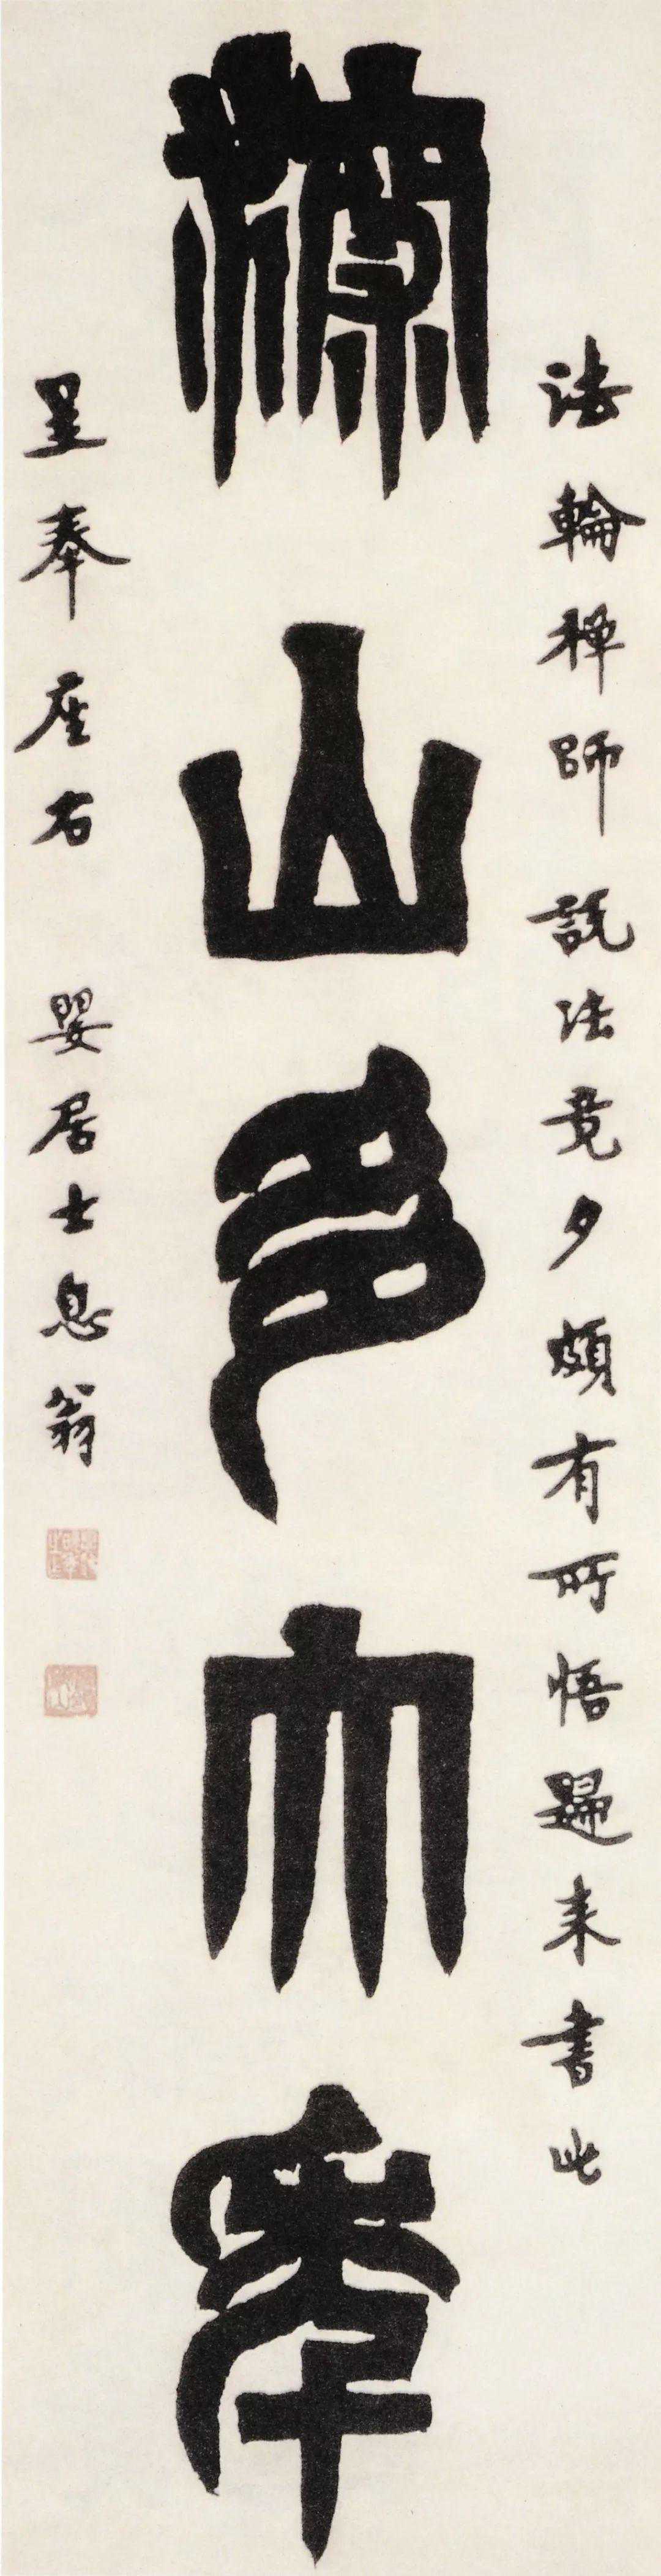 法輪禪師說法竟夕頗有所悟歸来書此
深山多大年
呈奉座右 嬰居士息翁